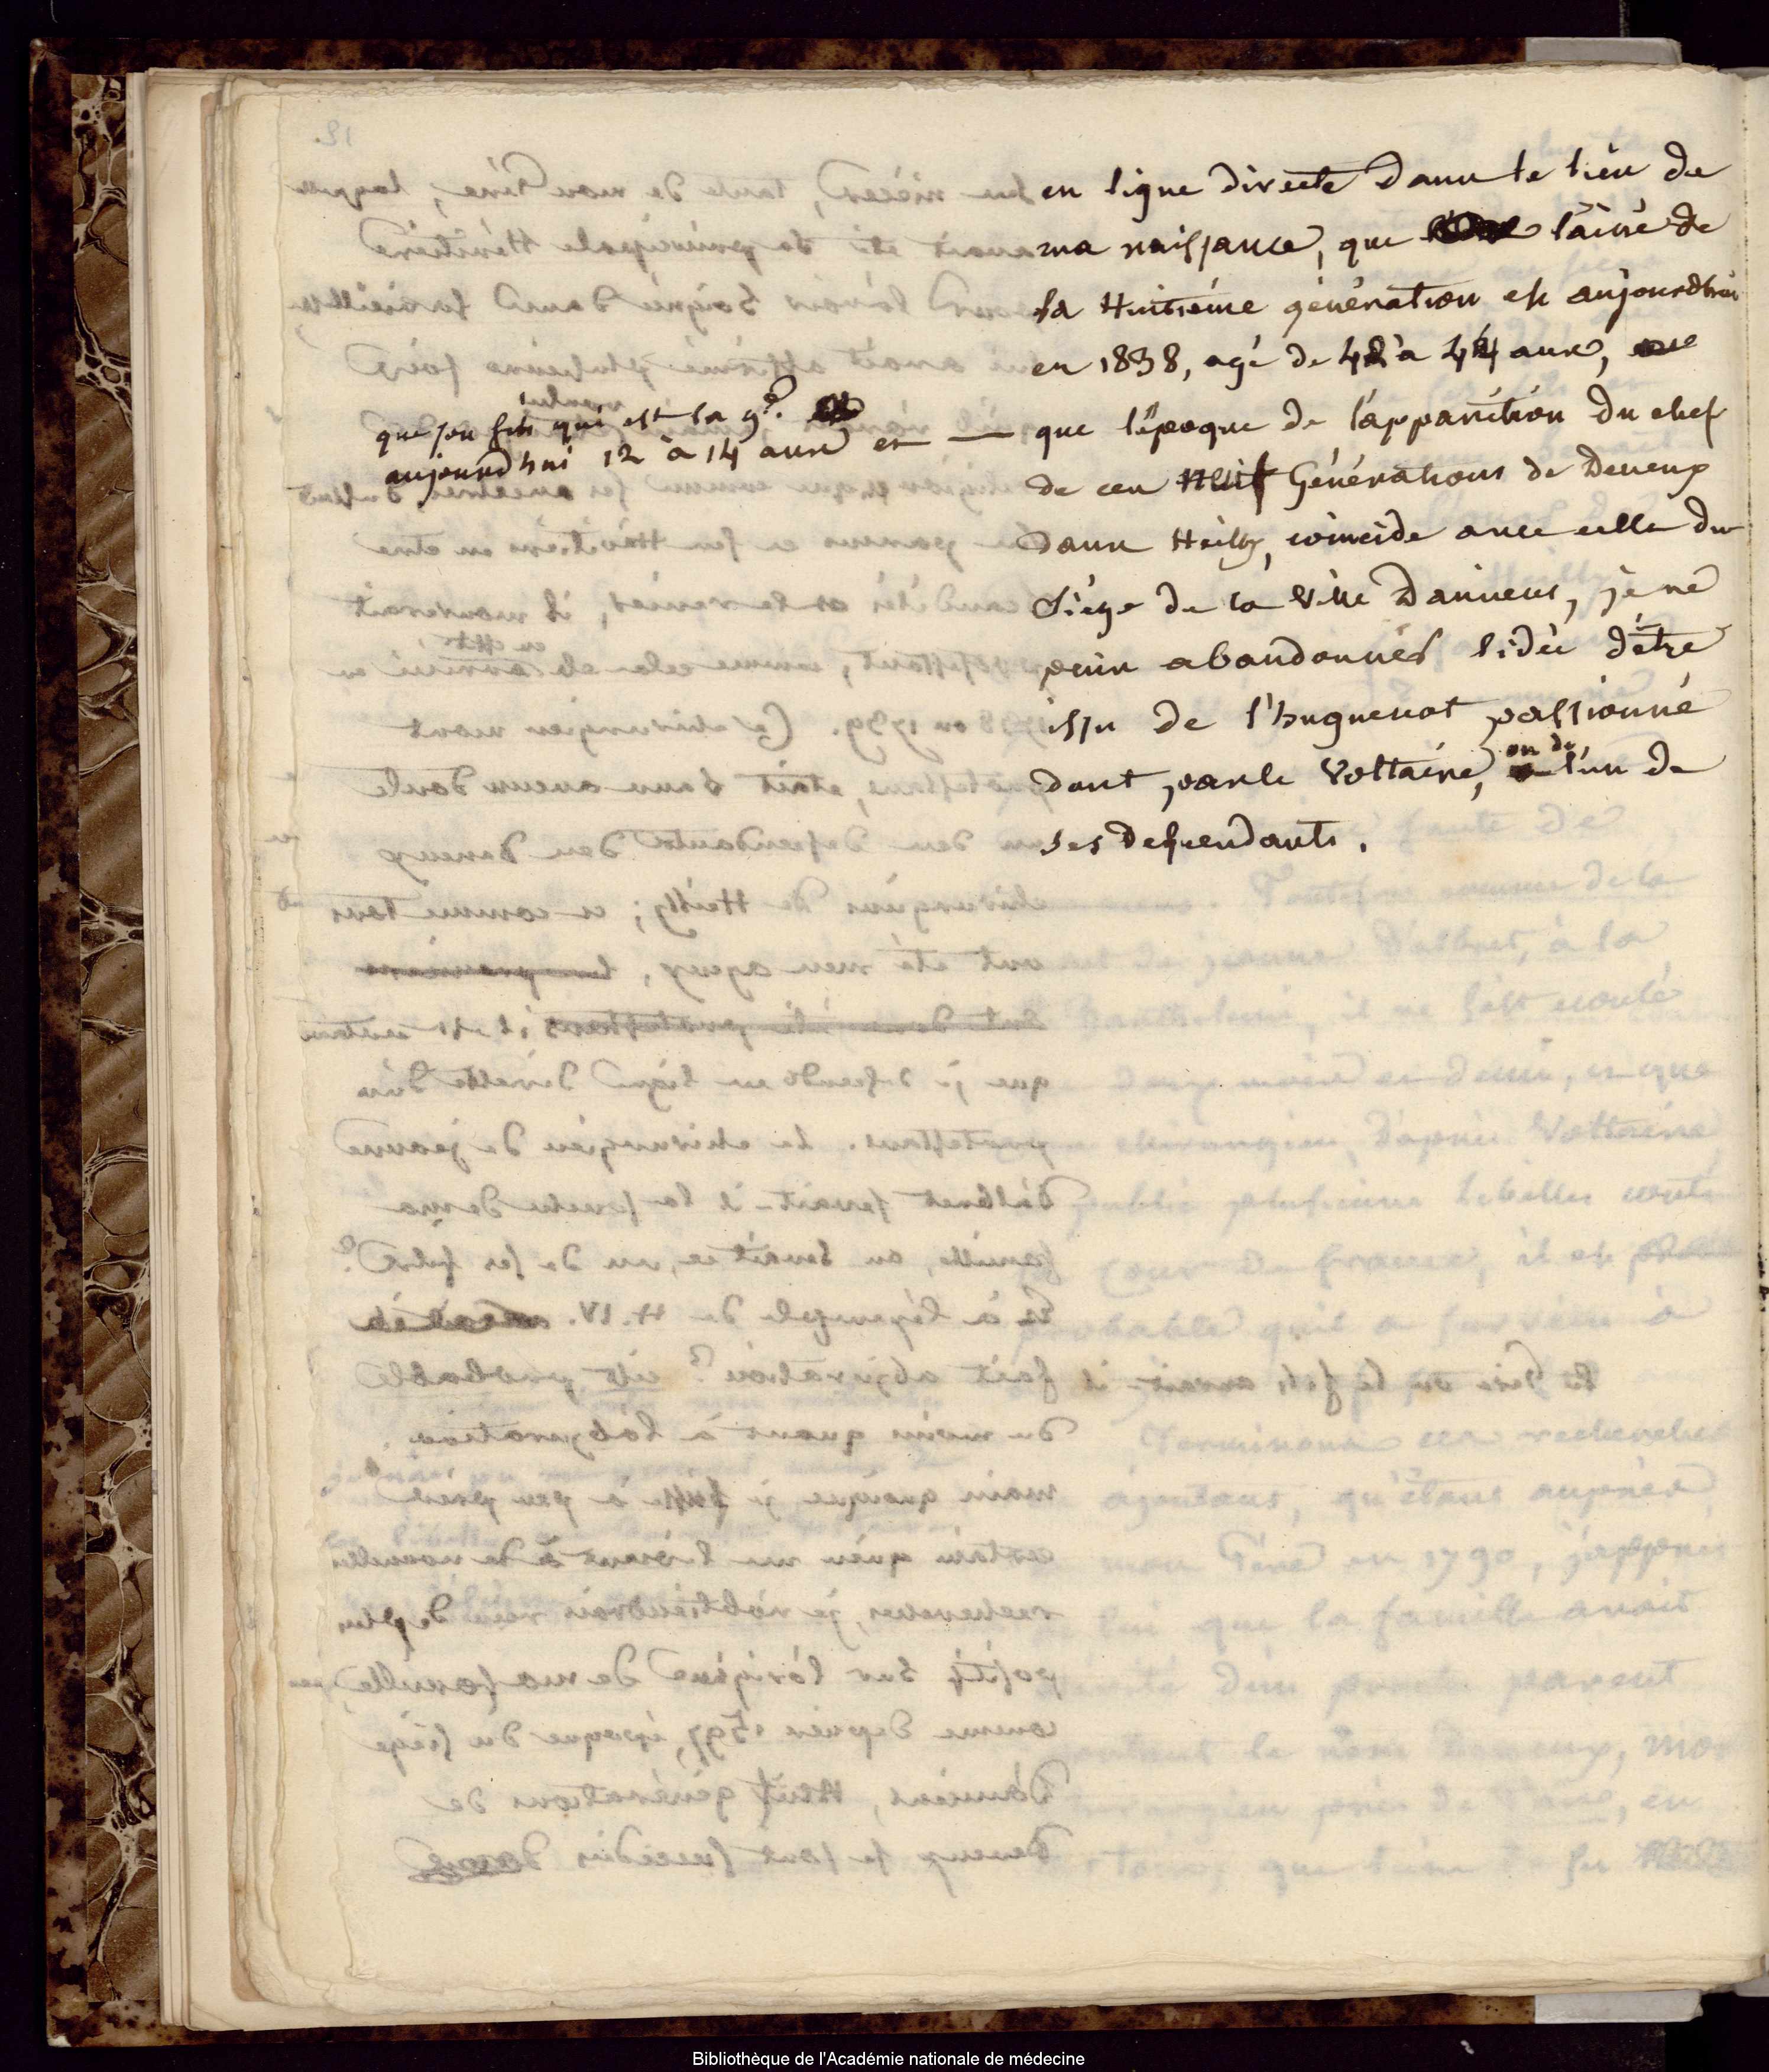 en ligne directe dans le lieu de
ma naissance, que l'ainé de
la Huitième génération est aujourdhui
en 1838, agé de 42 à 44 ans,
que son fils qui est la 9e.
aujourd'hui 12 à 14 ans et
que l'époque de l'apparition du chef
de ces Neuf Générations de Deneux
dans Heilly, coincide avec celle du
Siége de la Ville Damiens, je ne
puis abandonner lidée dêtre
issu de l'huguenot passionné
dont parle Voltaire, ou de l'un de
ses descendants.
Bibliothèque de l'Académie nationale de médecine